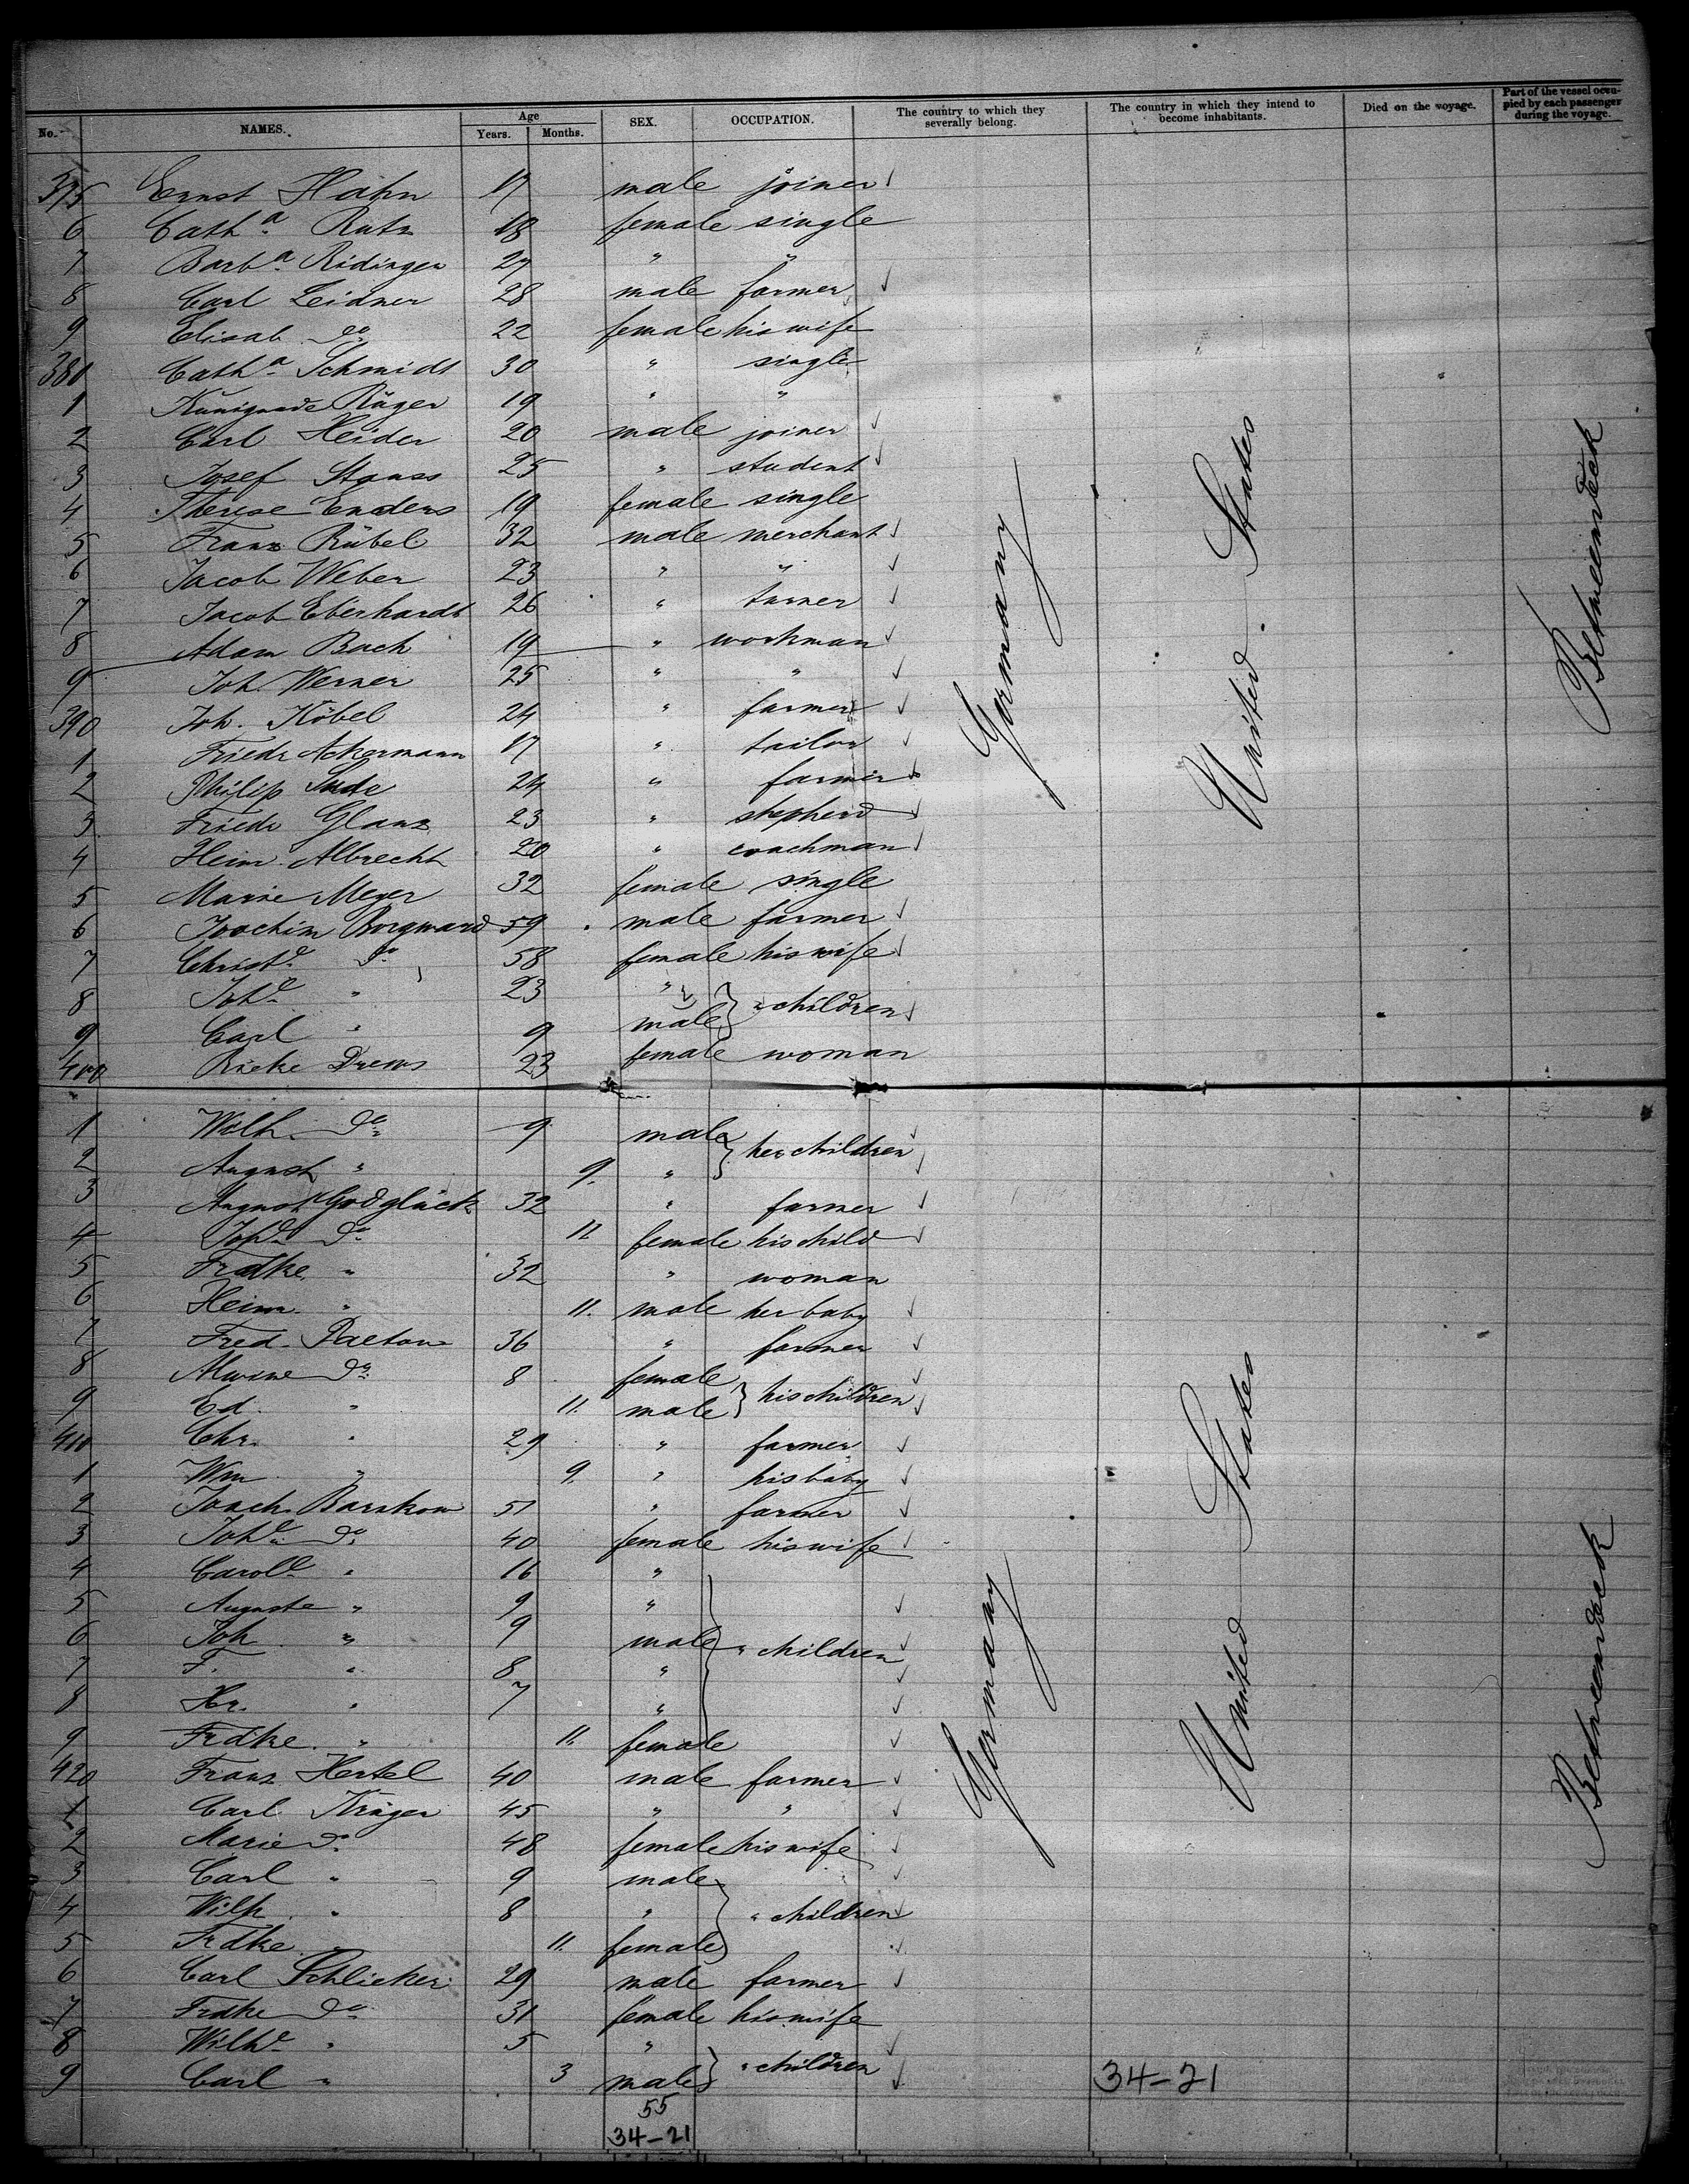 No. NAMES. Age Years. Months. SEX. OCCUPATION. The country to which they severally belong. The country in which they intend to become inhabitants. Died on the voyage. Part of the vessel occupied by each passenger during the voyage.
375 Ernst Hahn 17 male joiner
6 Cath.a Rutz 18 female single
7 Barb.a Ridinger 27 " "
8 Carl Leidner 28 male farmer
9 Elisab. do 22 female his wife
380 Cath.a Schmidt 30 " single
1 Kunigunde Rüger 19 " "
2 Carl Heider 20 male joiner
3 Josef Stauss 25 " student
4 Therese Enders 19 female single
5 Franz Rübel 32 male merchant
6 Jacob Weber 23 " "
7 Jacob Eberhardt 26 " turner
8 Adam Bach 19 " workman
9 Joh. Werner 25 " "
390 Joh. Köbel 24 " farmer
1 Friedr Ackermann 17 " tailor
2 Philip 24 " farmer
3 Friedr Glanz 23 " shepherd
4 Heinr. Albrecht 20 " coachman
5 Marie Meyer 32 female single
6 Joachim Borgward 59 male farmer
7 Christ.e do 58 female his wife
8 Joh.e " 23 "
9 Carl " 9 male } " children
400 Rieke Drews 23 female woman
1 Wilh. do 9 male
2 August " 9. " } her children
3 August Godglück 32 " farmer
4 Joh.e do 11 female his child
5 Frdke. " 32 " woman
6 Heinr. " 11. male her baby
7 Fred. Paetow 36 " farmer
8 Alwine do 8 female
9 Ed. " 11. male } his children
410 Chr. " 29 " farmer
1 Wm " 9. " his baby
2 Joach. Barskow 51 " farmer
3 Joh.e do 40 female his wife
4 Carol.e " 16 "
5 Auguste " 9 "
6 Joh " 9 male } " children
7 F. " 8 "
8 Hr. " 7 "
9 Frdke. " 11. female
420 Franz Hertel 40 male farmer
1 Carl Krüger 45 " "
2 Marie do 48 female his wife
3 Carl " 9 male
4 Wilh. " 8 " } " children
5 Frdke " 11. female
6 Carl Schlicker 29 male farmer
7 Frdke do 31 female his wife
8 Wilh.e " 5 "
9 Carl " 3 male } " children
55
34-21
34-21
Germany
United States
Betweendeck
Germany
United States
Betweendeck